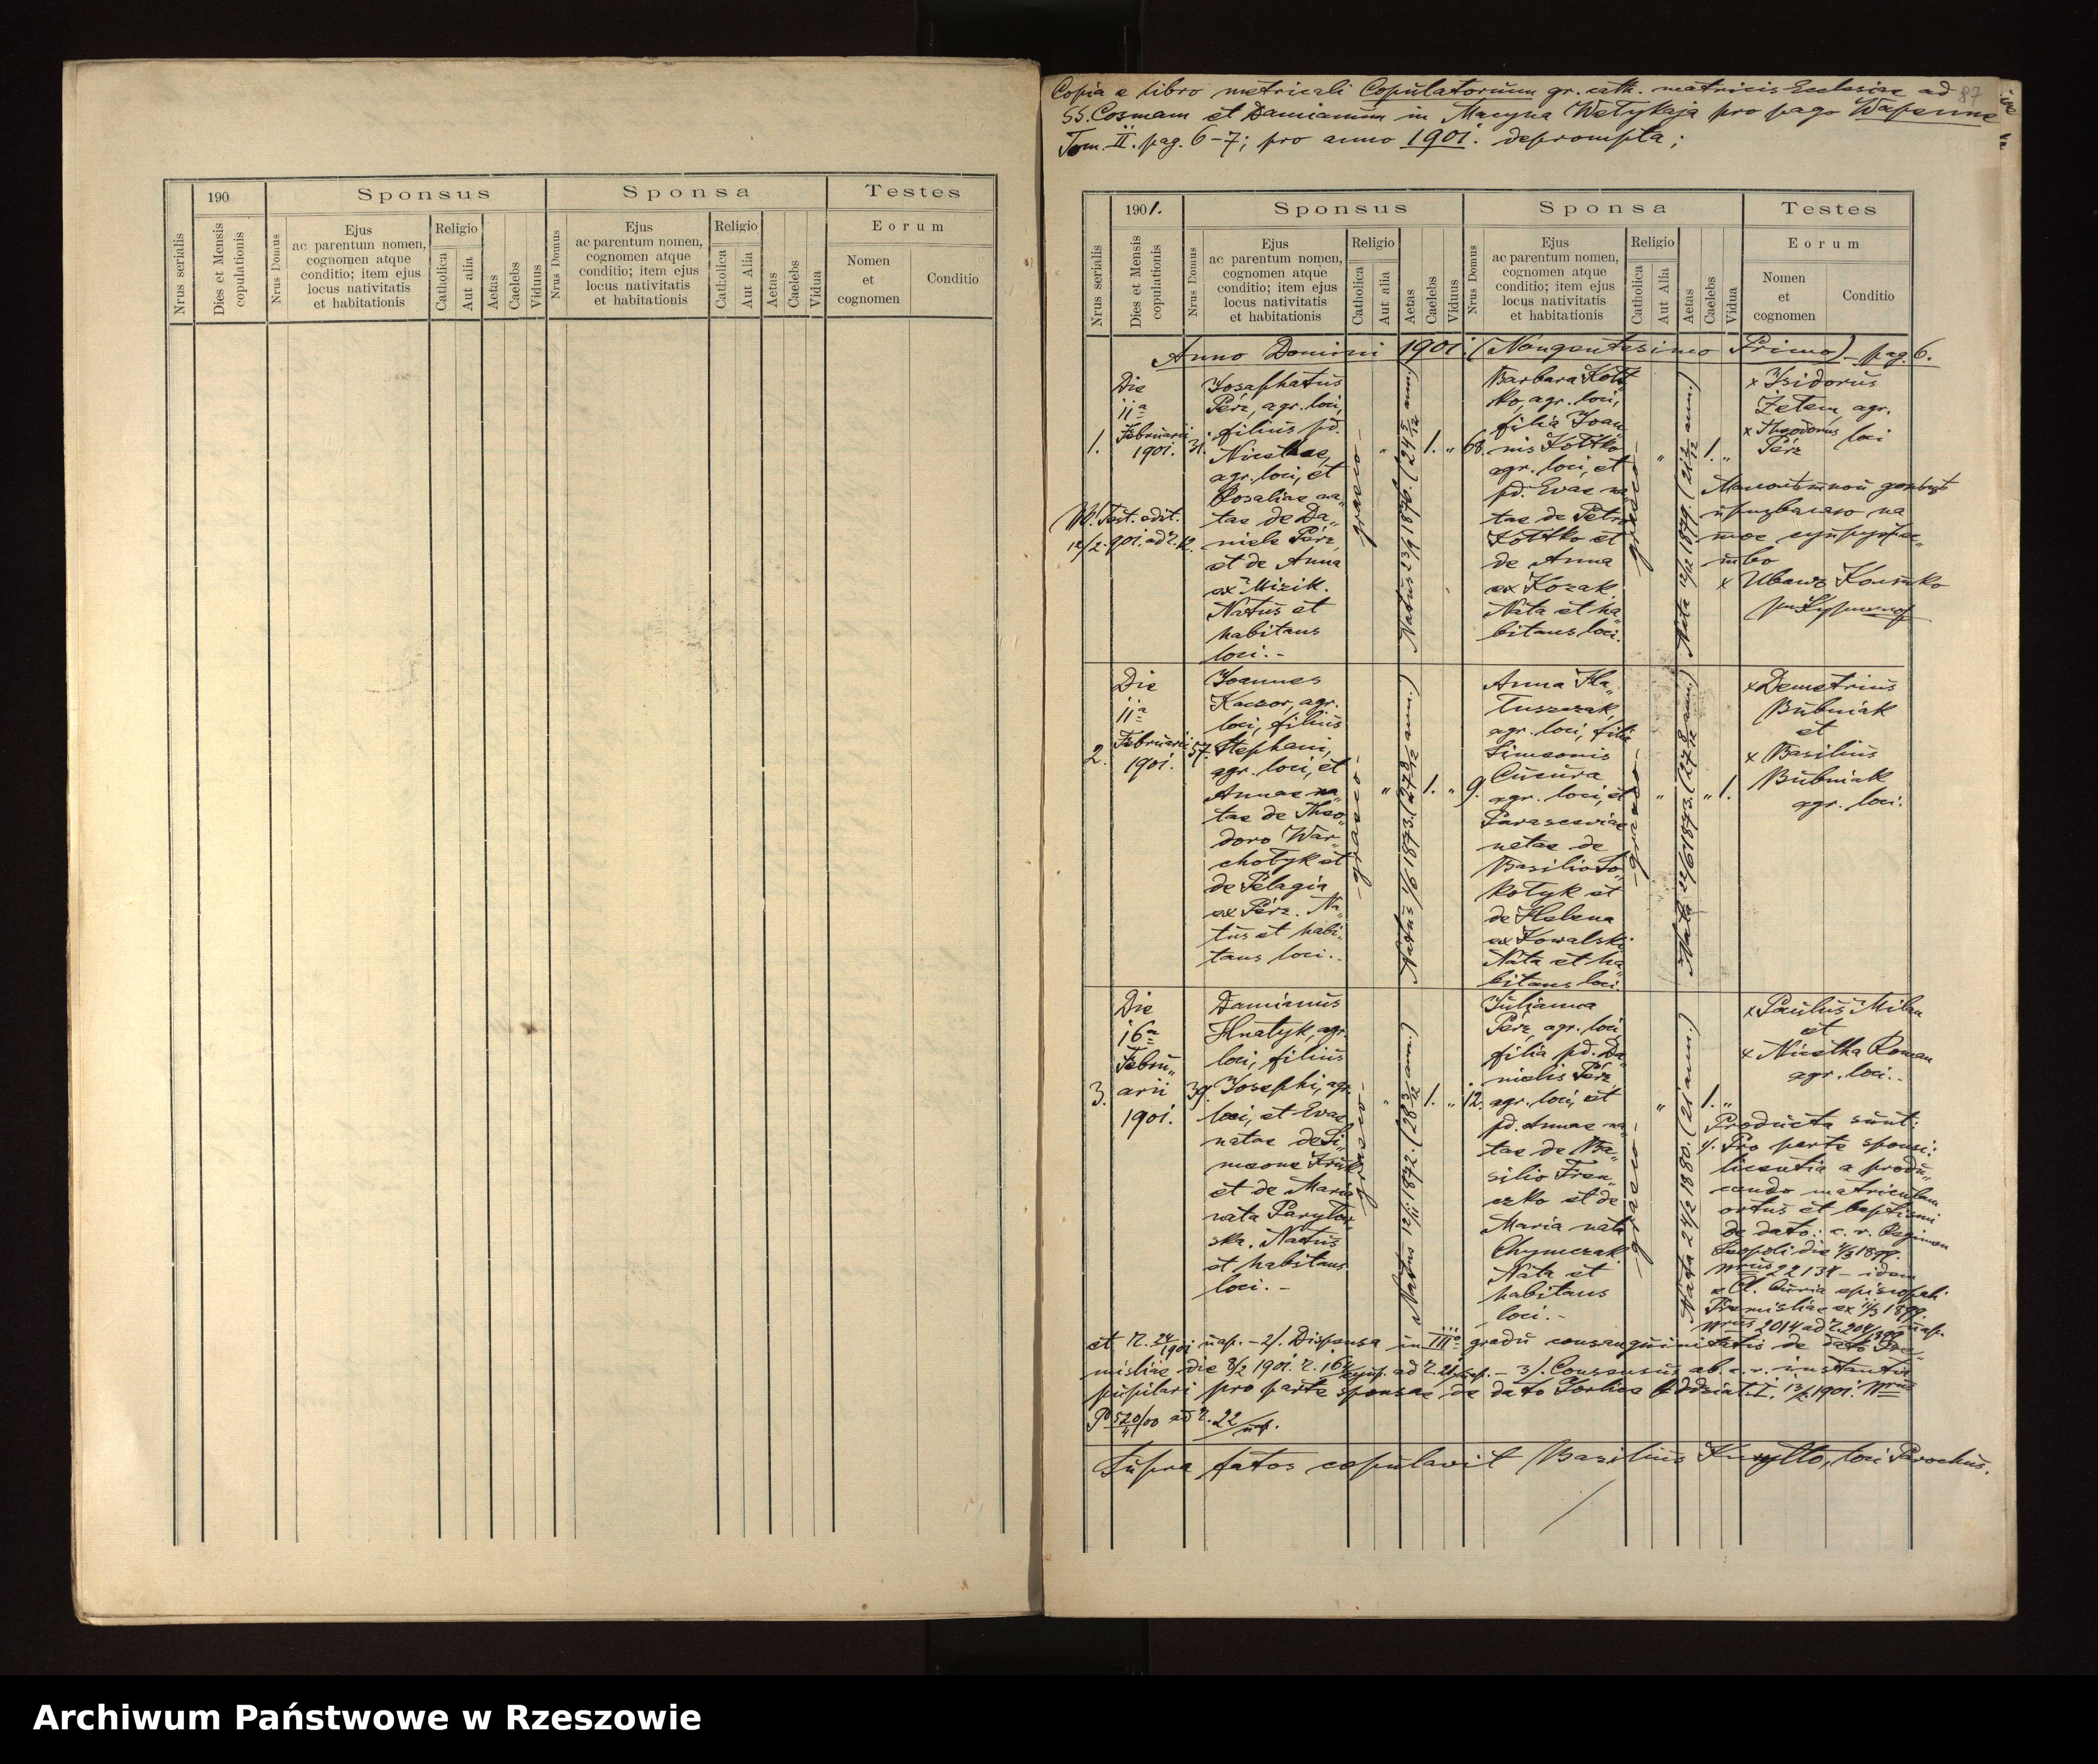 190
Sponsus
Sponsa
Testes
Nrus serialis
Dies et Mensis copulationis
Nrus Domus
Ejus
ac parentum nomen,
cognomen atque
conditio; item ejus
locus nativitatis
et habitationis
Religio
Catholica
Aut alia
Aetas
Caelebs
Viduus
Nrus Domus
Ejus
ac parentum nomen,
cognomen atque
conditio; item ejus
locus nativitatis
et habitationis
Religio
Catholica
Aut Alia
Aetas
Caelebs
Vidua
Eorum
Nomen
et
cognomen
Conditio
87
Copia e libro metricali Copulatorum gr. cath. matricis Ecclesiae ad
SS. Cosmam et Damianum in Męcyna Wełykaja pro pago Wapenne
Tom. II. pag. 6-7; pro anno 1901. deprompta;
1901.
Sponsus
Sponsa
Testes
Nrus serialis
Dies et Mensis copulationis
Nrus Domus
Ejus
ac parentum nomen,
cognomen atque
conditio; item ejus
locus nativitatis
et habitationis
Religio
Catholica
Aut alia
Aetas
Caelebs
Viduus
Nrus Domus
Ejus
ac parentum nomen,
cognomen atque
conditio; item ejus
locus nativitatis
et habitationis
Religio
Catholica
Aut Alia
Aetas
Caelebs
Vidua
Eorum
Nomen
et
cognomen
Conditio
Anno Domini 1901. (Nongentesimo Primo) - pag. 6.
1.
Die
11a
Februarii
1901.
31.
Josaphatus
Pérz, agr. loci,
filius pd.
Nicethae,
agr. loci, et
Rosaliae na„
tae de Da„
niele Pérz
et de Anna
ex Mizik.
Natus et
habitans
loci.-
graeco-
„
Natus 23/9 1876. (24 5/12 ann.)
1.
„
68.
Barbara Kott
ko, agr. loci,
filia Joan„
nis Kottko
agr. loci, et
pd. Evae na„
tae de Petro
Kottko et
de Anna
ex Kozak.
Nata et ha„
bitans loci.
graeco-
„
Nata 12/12 1879. (21 2/12 ann.)
1.
„
x Isidorus
Zetem, agr.
x Theodorus
Pérz
loci
2.
Die
11a
Februarii
1901.
57.
Joannes
Kaczor, agr.
loci, filius
Stephani,
agr. loci, et
Annae na„
tae de Theo„
doro War„
chołyk et
de Pelagia
ex Pérz. Na„
tus et habi„
tans loci.-
-graeco-
„
1.
„
9.
Anna Ha„
tuszczak,
agr. loci, filia
Simeonis
Cucura
agr. loci, et
Parasceviae
natae de
Basilio So„
kołyk et
de Helena
ex Kowalski
Nata et ha„
bitans loci.
-graeco-
„
„
1.
x Demetrius
Bubniak
et
x Basilius
Bubniak
agr. loci.
3.
Die
16a
Febru„
arii
1901.
39.
Damianus
Hnatyk, agr.
loci, filius
Josephi, agr.
loci, et Evae
natae de Si„
meone
et de Maria
nata
ska. Natus
et habitans
loci.-
graeco-
„
Natus 12/11 1872. (28 3/12 ann.)
1.
„
12.
Julianna
Pérz, agr. loci
filia pd. Da„
nielis Pérz
agr. loci, et
pd. Annae na„
tae de Ba„
silio Fren„
czko et de
Maria nata
Chymczak
Nata et
habitans
loci.-
-graeco-
„
Nata 24/2 1880. (21 ann.)
1.
„
x Paulus Milan
et
x Nicetha Roman
agr. loci.-
Producta sunt:
1. Pro parte sponsi:
licentia a produ„
cendo matriculam
ortus et baptismi
de dato: c. r. Regimen
Leopoli die
Nrus 22134 - idem
Curia episcopali
Premisliae
-2/. Dispensa in III gradu consanguinitatis de dato Pre„
misliae die 8/2 1901. - 3/. Consensus ab c. r. instantia
pupilari pro parte sponsae de dato Gorlice
Supra fatos copulavit Basilius Kuryłło, loci Parochus.
Archiwum Państwowe w Rzeszowie